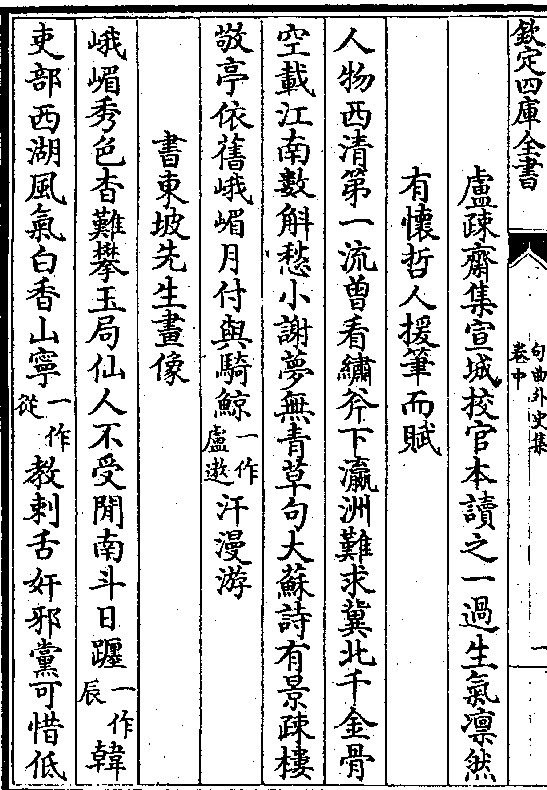 欽定四庫全書
句曲外史集
卷中
一
盧疎齋集宣城挍官本讀之一過生氣凛然
有懷哲人援筆而賦
人物西清第一流曽看繡斧下瀛洲難求冀北千金骨
空載江南數斛愁小謝夢無青草句大蘇詩有景疎樓
敬亭依舊峨嵋月付與騎鯨一作盧遨汗漫游
書東坡先生畫像
峨嵋秀色杳難攀玉局仙人不受閒南斗日躔一作辰韓
吏部西湖風氣白香山寧一作從教刺舌奸邪黨可惜低